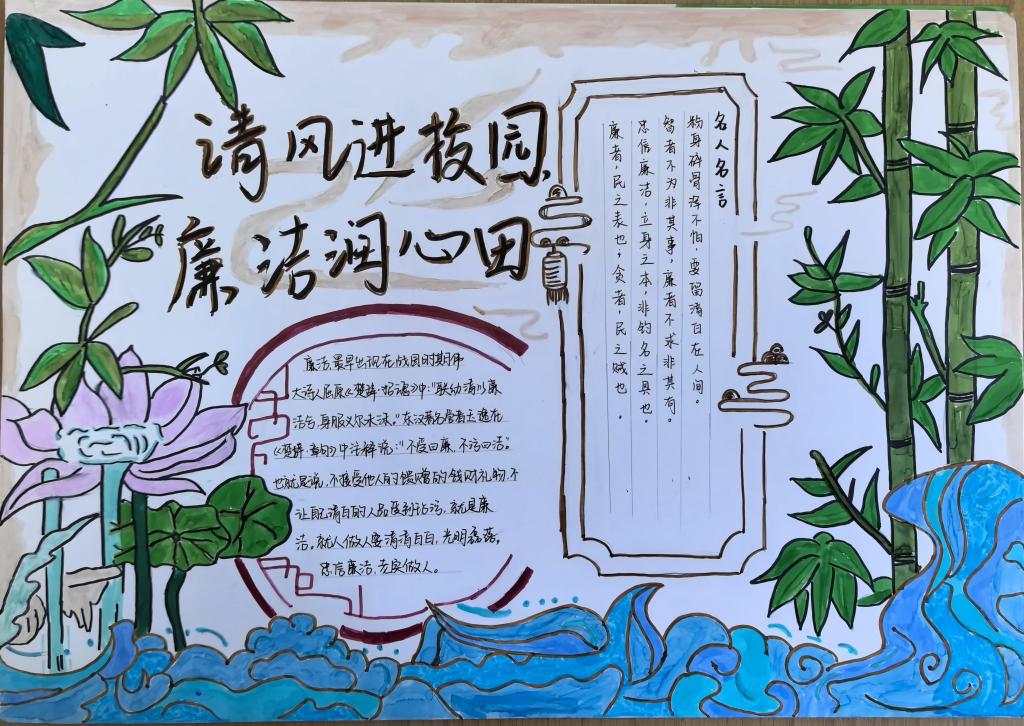 清风进校园
廉洁润心田
名人名言
粉身碎骨浑不怕，要留清白在人间。
智者不为非其事，廉者不求非其有。
忠信廉洁，立身之本，非钓名之具也。
廉者，民之表也；贪者，民之贼也。
廉洁，最早出现在战国时期伟
大诗人屈原《楚辞·招魂》中："朕幼清以廉
洁兮，身服义尔未沫。"东汉著名学者王逸在
《楚辞·章句》中注释说："不受曰廉，不污曰洁。"
也就是说，不接受他人的馈赠的钱财礼物，不
让自己清白的人品受到玷污，就是廉
洁。就人做人要清清白白，光明磊落，
忠信廉洁，老实做人。